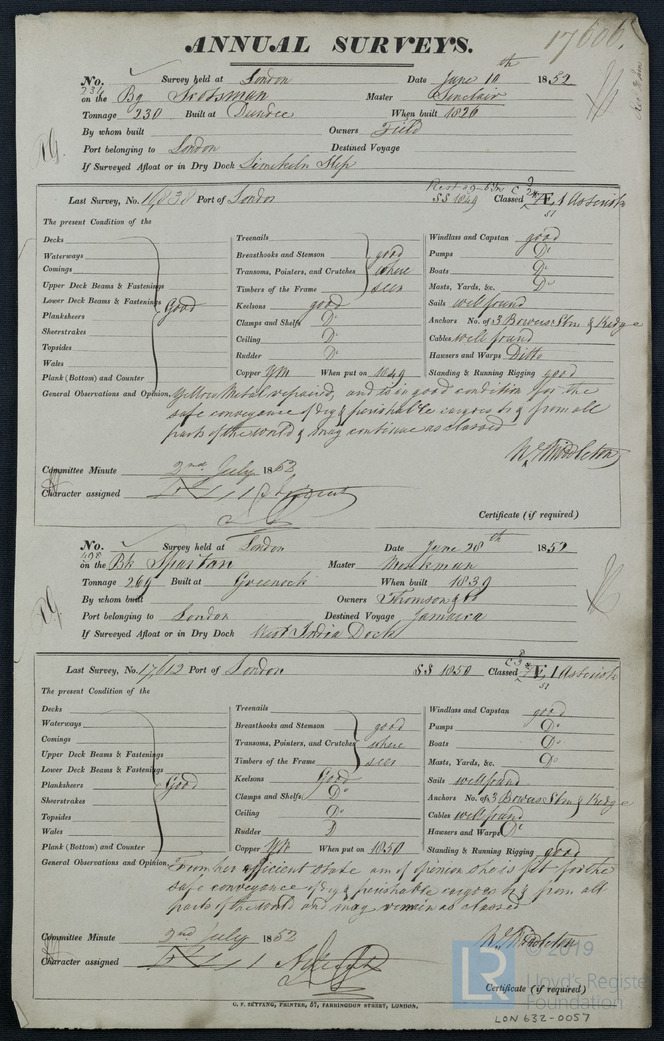 ANNUAL SURVEYS.
17606.
No. Survey held at London Date June 10th 1852
234 on the Bg Master Sinclair
Tonnage 230 Built at Dundee When built 1826
By whom built Owners Field
Port belonging to London Destined Voyage
If Surveyed Afloat or in Dry Dock Limekiln Slip
Last Survey, No. Port of London SS 1849 Classed Æ 1 Asterisk
51
The present Condition of the
Decks
Waterways
Comings
Upper Deck Beams & Fastenings
Lower Deck Beams & Fastenings
Planksheers Good
Sheerstrakes
Topsides
Wales
Plank (Bottom) and Counter
Treenails
Breasthooks and Stemson good
Transoms, Pointers, and Crutches where
Timbers of the Frame seen
Keelsons good
Clamps and Shelfs Do
Ceiling Do
Rudder Do
Copper YM When put on 1849
Windlass and Capstan good
Pumps Do
Boats Do
Masts, Yards, &c. Do
Sails well found
Anchors No. of 3 Bowers Strm & Kedge
Cables well found
Hawsers and Warps Ditto
Standing & Running Rigging good
General Observations and Opinion, Yellow Metal repaired, and is in good condition for the
safe conveyance of dry & perishable cargoes to & from all
parts of the world & may continue as classed
Wm Middleton
Committee Minute 2nd July 1852
Character assigned
Certificate (if required)
No. Survey held at London Date June 28th 1852
on the Bk Spartan Master Monkman
Tonnage 269 Built at Greenock When built 1839
By whom built Owners Thomson & Co
Port belonging to London Destined Voyage Jamaica
If Surveyed Afloat or in Dry Dock West India Dock
Last Survey, No. 17612 Port of London SS 1850 Classed Æ 1 Asterisk
51
The present Condition of the
Decks
Waterways
Comings
Upper Deck Beams & Fastenings
Lower Deck Beams & Fastenings
Planksheers Good
Sheerstrakes
Topsides
Wales
Plank (Bottom) and Counter
Treenails
Breasthooks and Stemson good
Transoms, Pointers, and Crutches where
Timbers of the Frame seen
Keelsons Good
Clamps and Shelfs Do
Ceiling Do
Rudder D
Copper YM When put on 1850
Windlass and Capstan good
Pumps Do
Boats Do
Masts, Yards, &c. Do
Sails well found
Anchors No. of 3 Bowers Strm & Kedge
Cables well found
Hawsers and Warps Do
Standing & Running Rigging good
General Observations and Opinion, From her efficient state am of opinion she is fit for the
safe conveyance of dry & perishable cargoes to & from all
parts of the world and may remain as classed
Wm Middleton
Committee Minute 2nd July 1852
Character assigned
Certificate (if required)
C. F. SEYFANG, PRINTER, 57, FARRINGDON STREET, LONDON.
LR © 2019
Lloyd's Register
Foundation
LON 632-0057